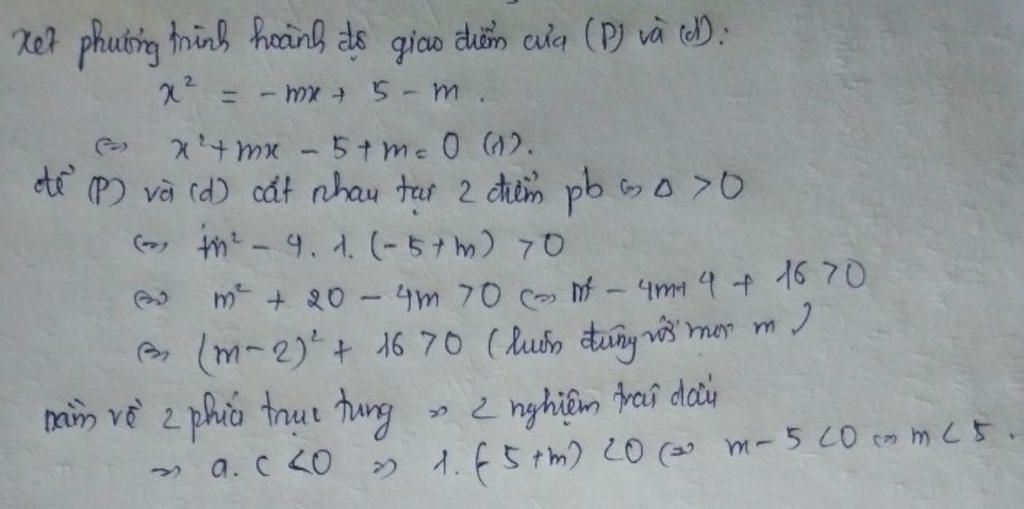 Xét phương trình hoành độ giao điểm của (P) và (d):
x² = -mx + 5 - m.
⇔ x² + mx - 5 + m = 0 (1).
để (P) và (d) cắt nhau tại 2 điểm pb ⇔ Δ > 0
⇔ m² - 4. 1. (-5 + m) > 0
⇔ m² + 20 - 4m > 0 ⇔ m² - 4m + 4 + 16 > 0
⇔ (m - 2)² + 16 > 0 (luôn đúng với mọi m)
nằm về 2 phía trục tung ⇒ 2 nghiệm trái dấu
⇒ a. c < 0 ⇒ 1. (-5 + m) < 0 ⇔ m - 5 < 0 ⇔ m < 5.